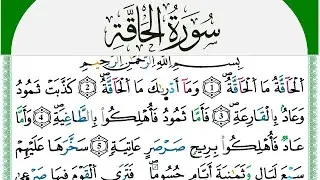 سُورَةُ الْحَاقَّةِ
بِسْمِ اللهِ الرَّحْمٰنِ الرَّحِيْمِ
اَلْحَآقَّةُ ۝١ مَا الْحَآقَّةُ ۝٢ وَمَآ اَدْرٰىكَ مَا الْحَآقَّةُ ۝٣ كَذَّبَتْ ثَمُوْدُ
وَعَادٌۢ بِالْقَارِعَةِ ۝٤ فَاَمَّا ثَمُوْدُ فَاُهْلِكُوْا بِالطَّاغِيَةِ ۝٥ وَاَمَّا
عَادٌ فَاُهْلِكُوْا بِرِيْحٍ صَرْصَرٍ عَاتِيَةٍ ۝٦ سَخَّرَهَا عَلَيْهِمْ
سَبْعَ لَيَالٍ وَّثَمٰنِيَةَ اَيَّامٍ حُسُوْمًا فَتَرَى الْقَوْمَ فِيْهَا صَرْعٰى